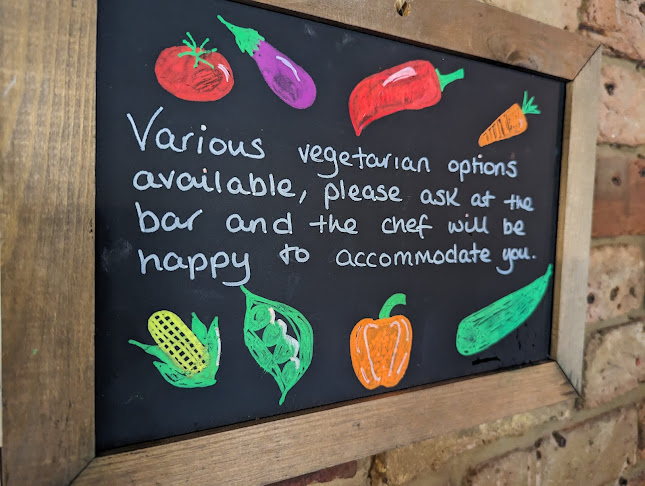 Various vegetarian options
available, please ask at the
bar and the chef will be
happy to accommodate you.